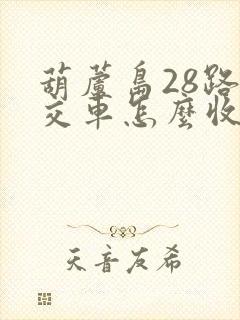 葫蘆島28路
交車怎麼收
天音友希